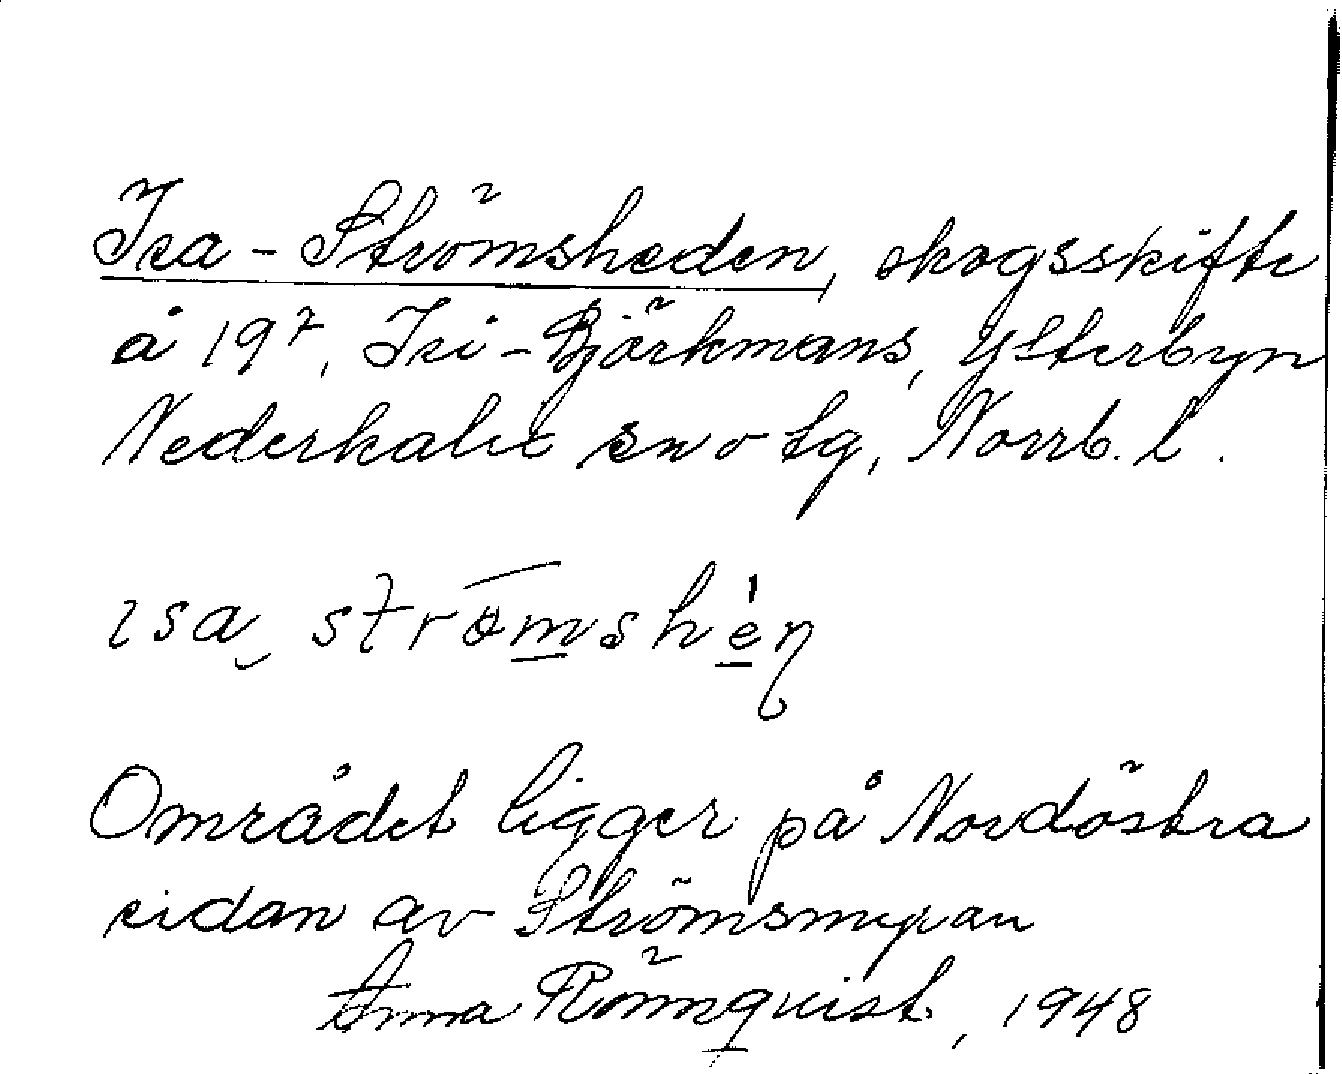 Isa-Strömsheden, skogsskifte
å 19⁷, Isi-Björkmans, Ytterbyn
Nederkalix sn o tg, Norrb. l.
ısa strömshén
Området ligger på Nordöstra
sidan av Strömsmyran
Anna Rönnquist, 1948